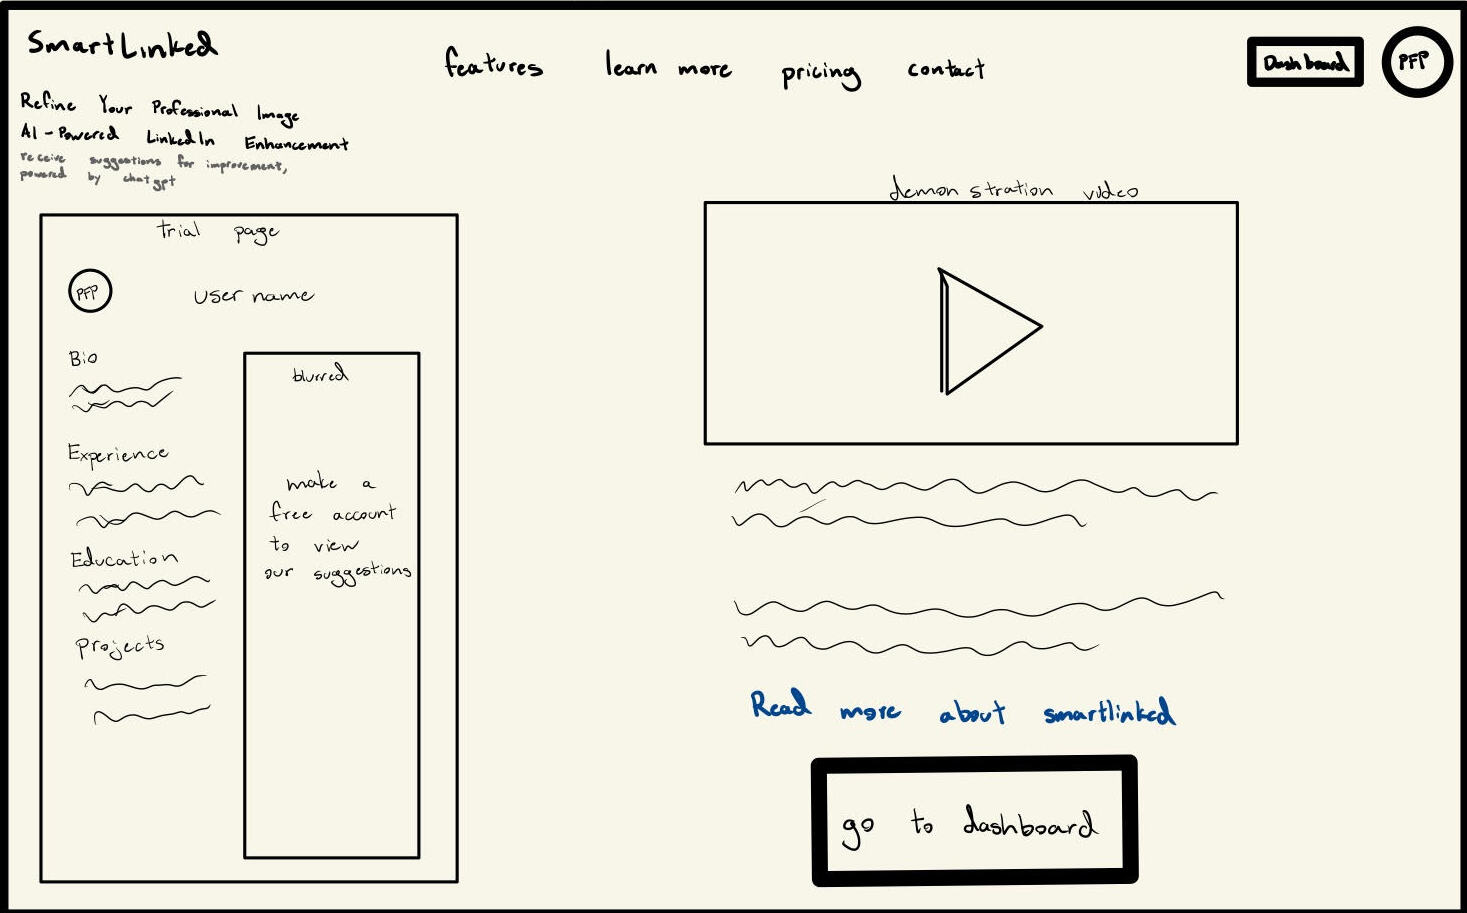 SmartLinked
features learn more pricing contact
Dashboard
PFP
Refine Your Professional Image
AI-Powered LinkedIn Enhancement
receive suggestions for improvement,
powered by chatgpt
trial page
PFP
user name
Bio
Experience
Education
Projects
blurred
make a
free account
to view
our suggestions
demonstration video
Read more about smartlinked
go to dashboard